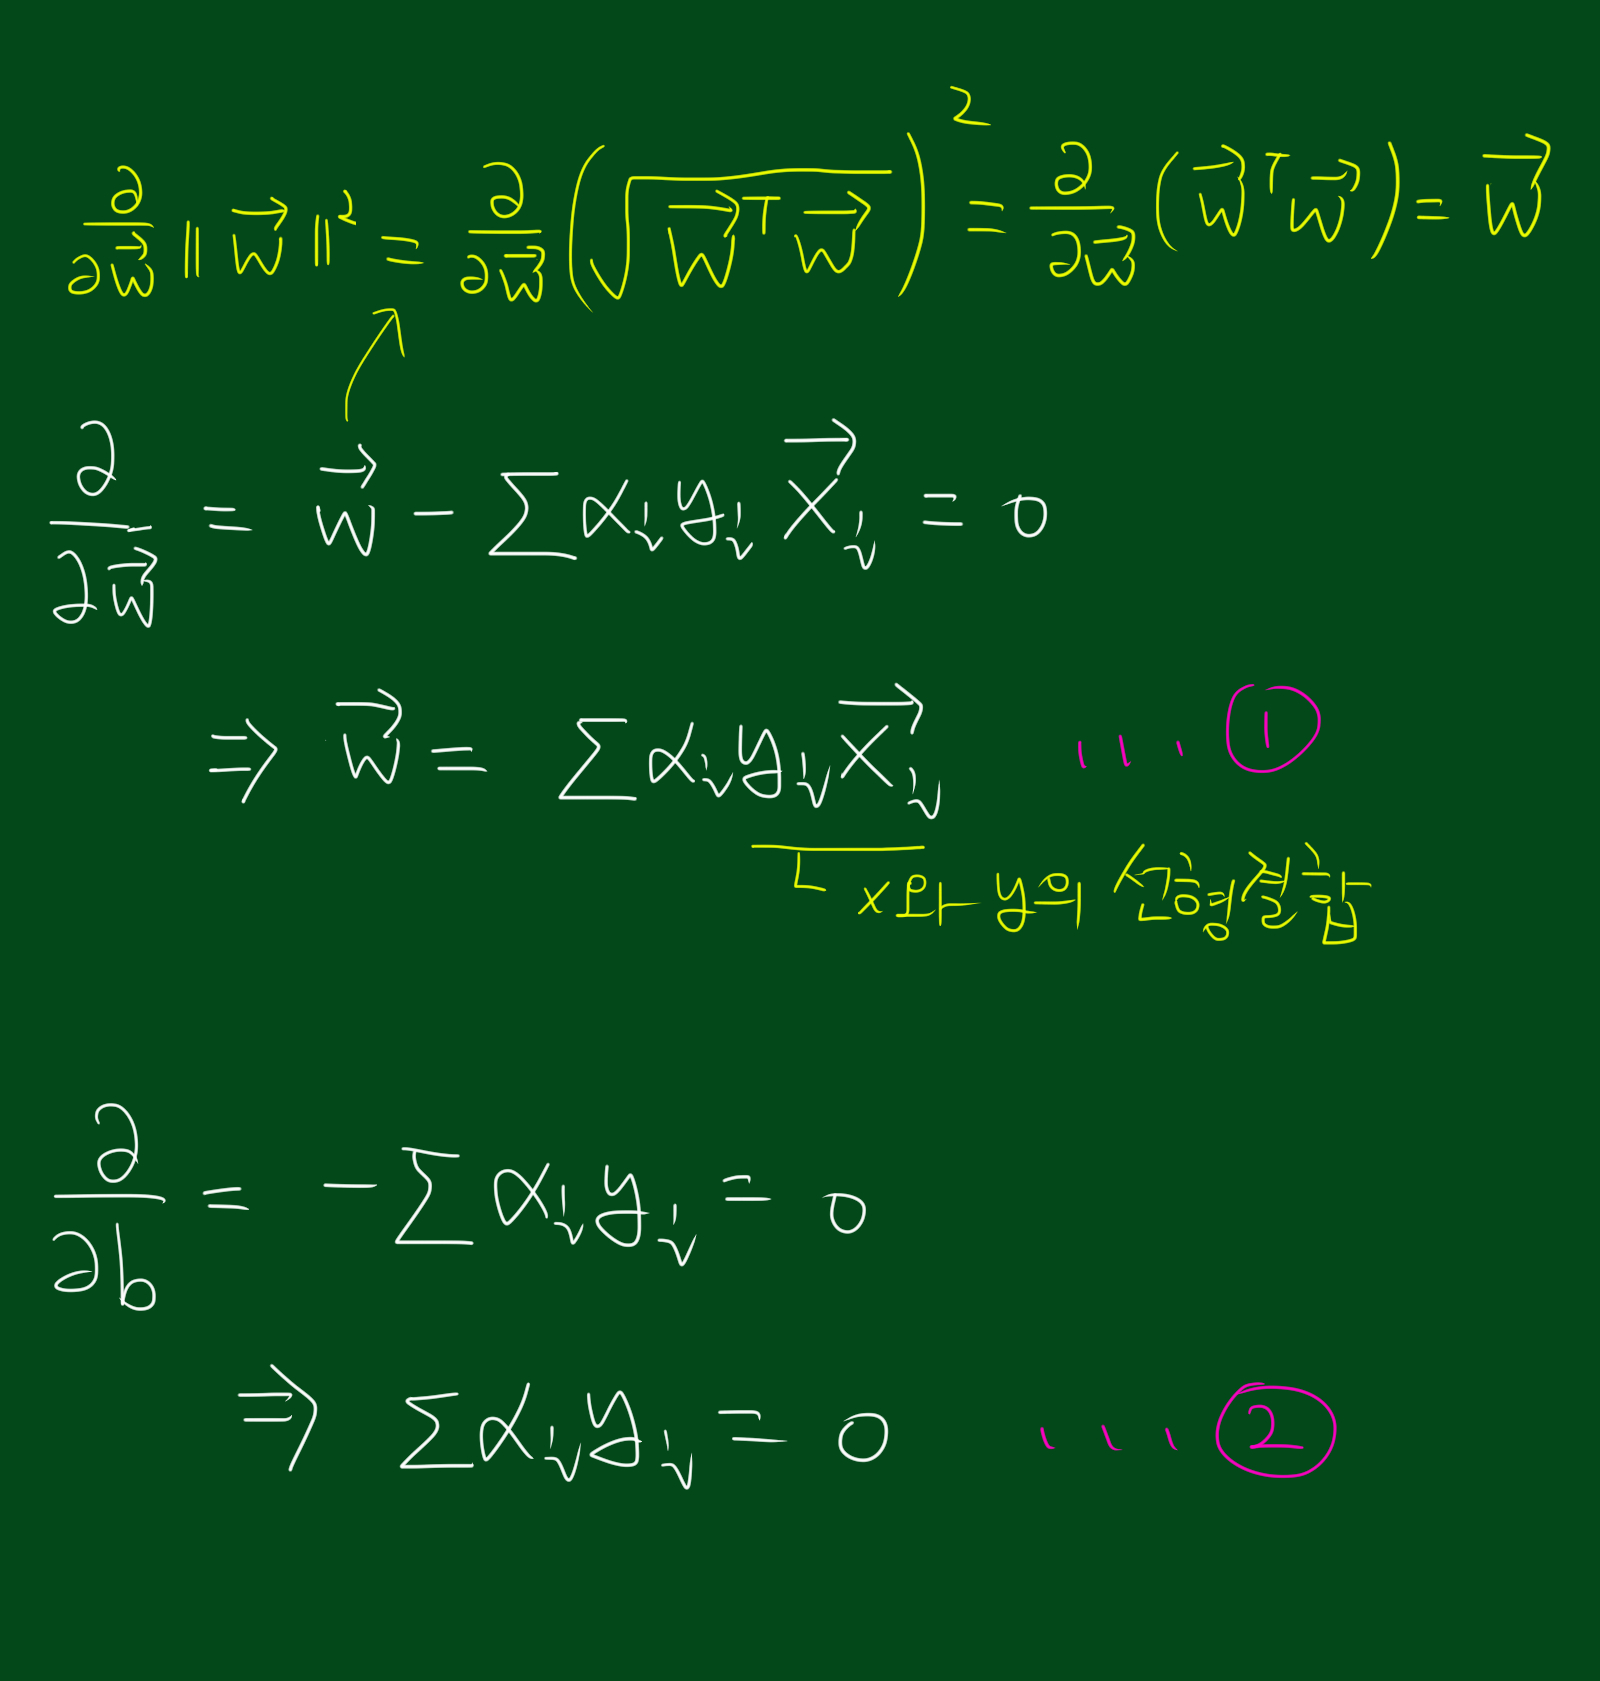 ∂/∂w⃗ ‖w⃗‖² = ∂/∂w⃗ (√(w⃗ᵀw⃗))² = ∂/∂w⃗ (w⃗ᵀw⃗) = w⃗
∂/∂w⃗ = w⃗ - Σαᵢyᵢx⃗ᵢ = 0
⇒ w⃗ = Σαᵢyᵢx⃗ᵢ ... ①
x와 y의 선형결합
∂/∂b = -Σαᵢyᵢ = 0
⇒ Σαᵢyᵢ = 0 ... ②